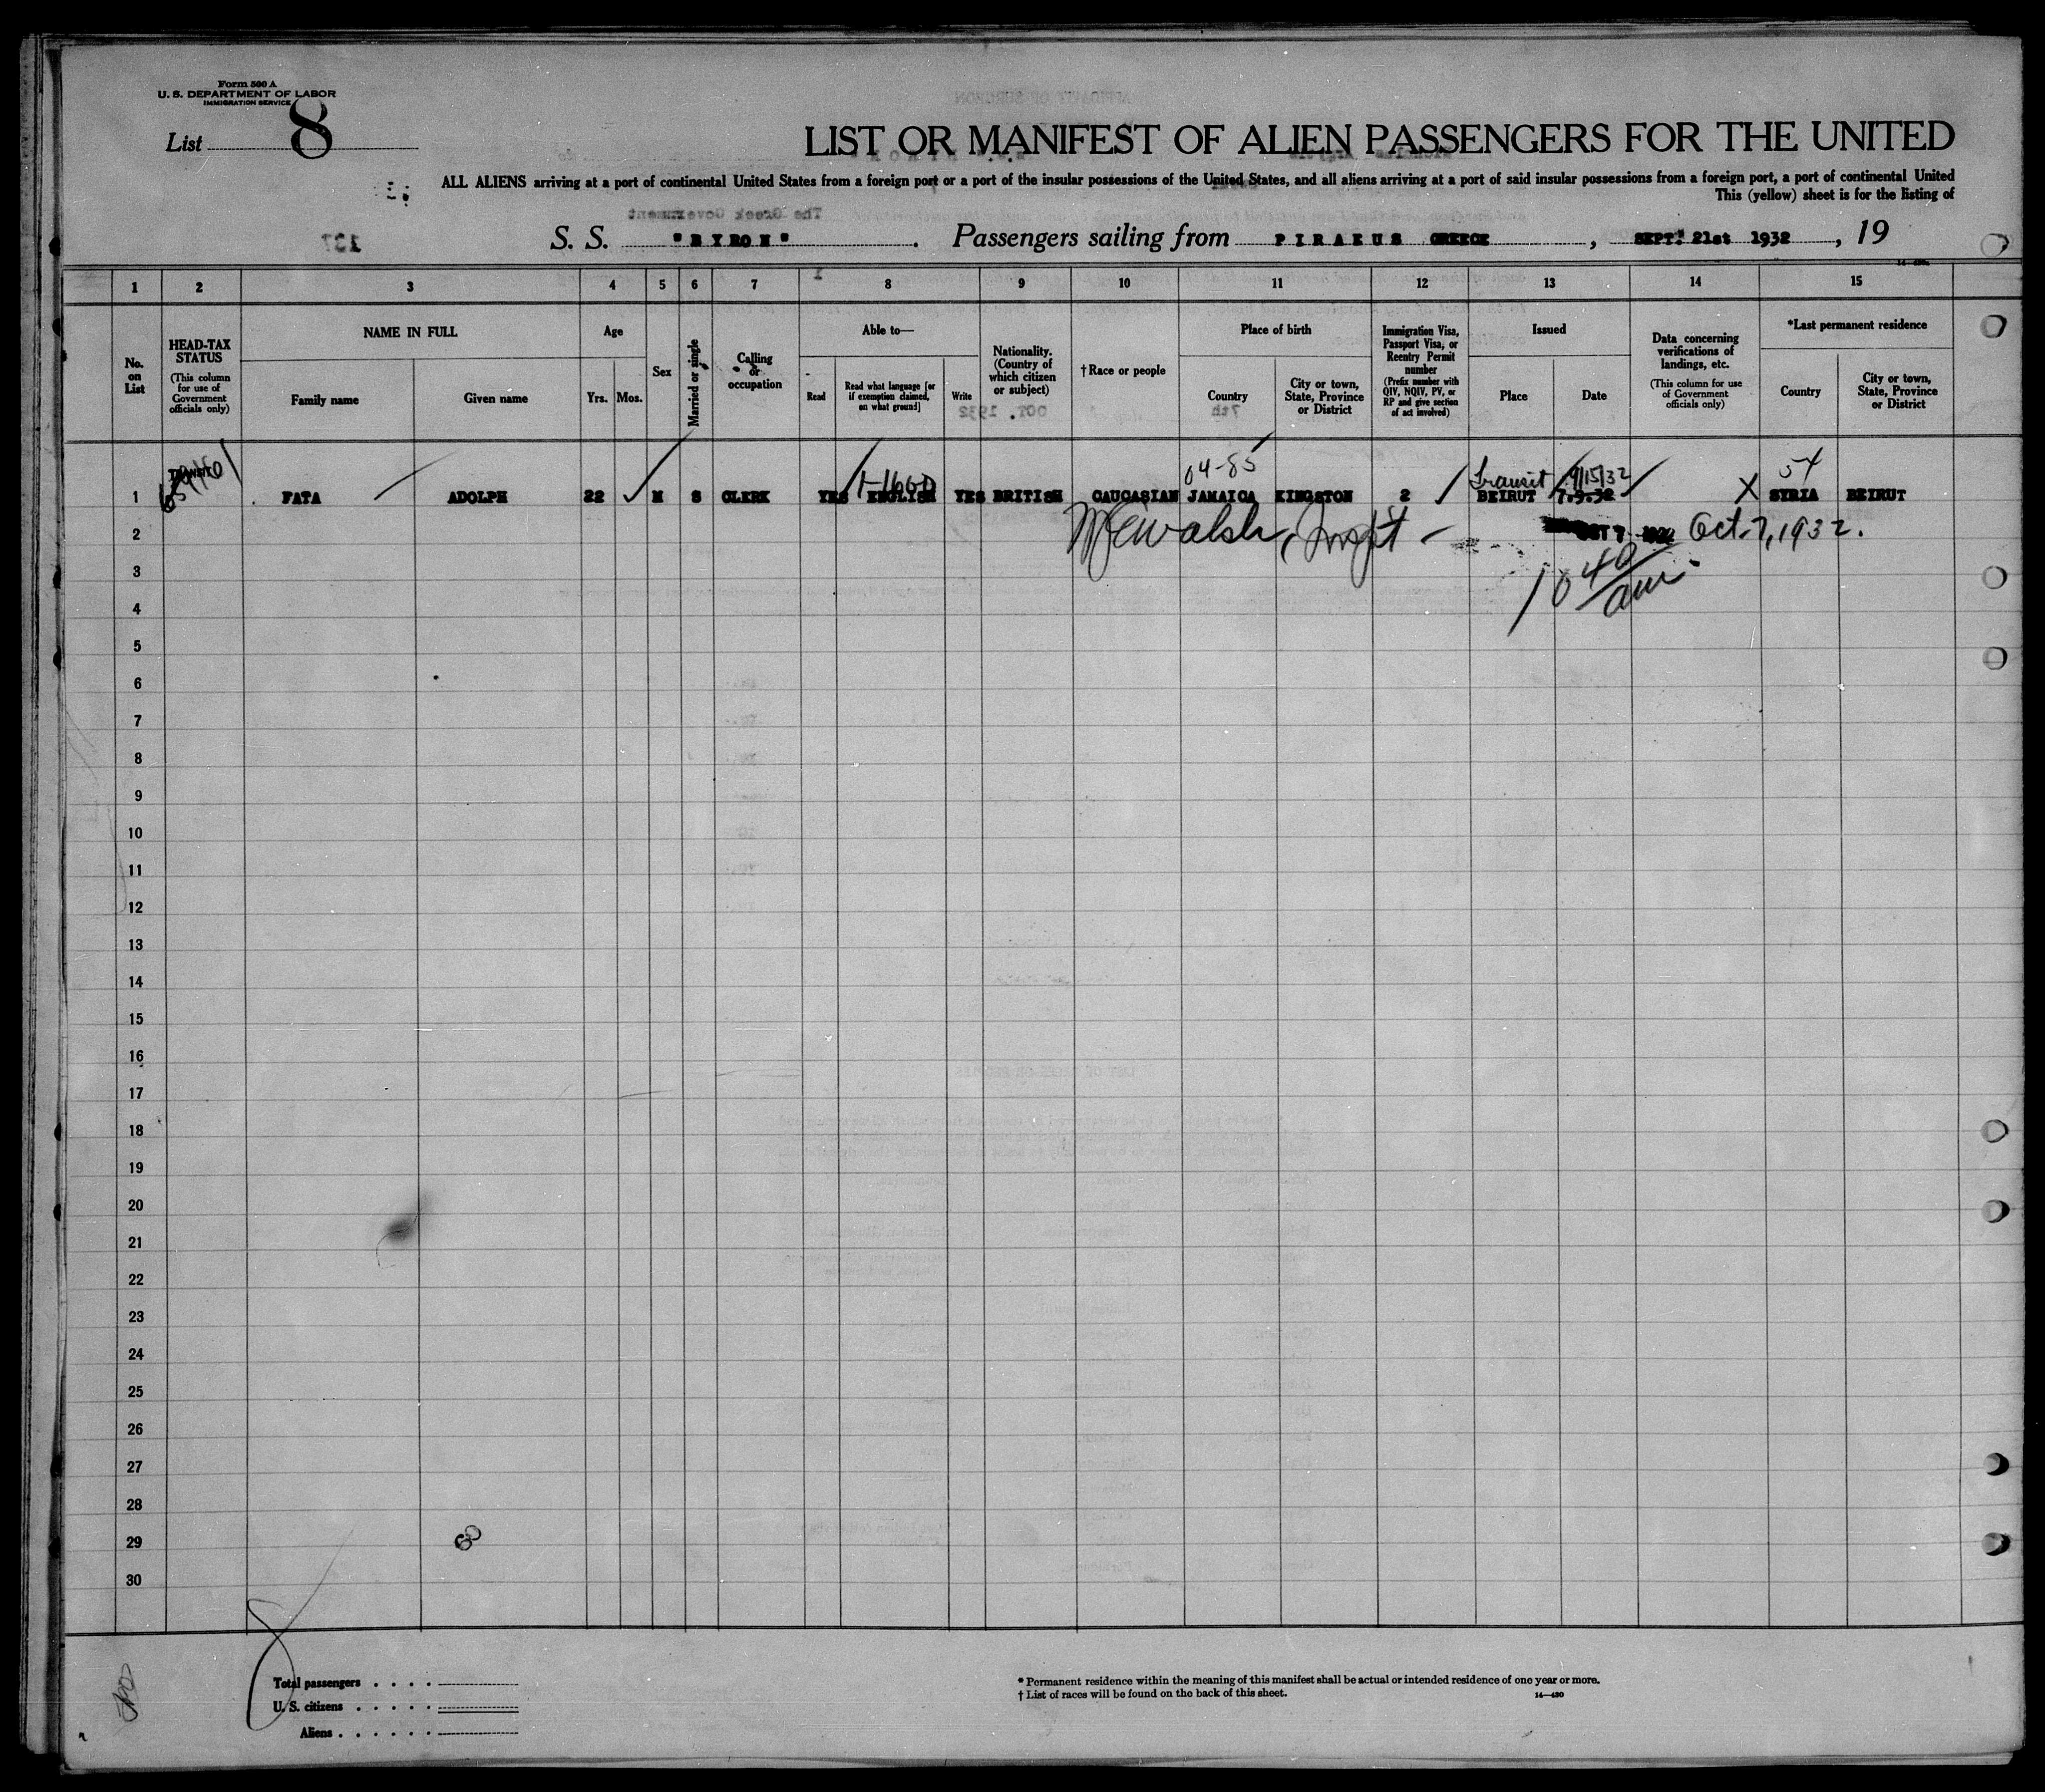 Form 500 A
U. S. DEPARTMENT OF LABOR
IMMIGRATION SERVICE
List 8
LIST OR MANIFEST OF ALIEN PASSENGERS FOR THE UNITED
ALL ALIENS arriving at a port of continental United States from a foreign port or a port of the insular possessions of the United States, and all aliens arriving at a port of said insular possessions from a foreign port, a port of continental United
This (yellow) sheet is for the listing of
S. S. "BYRON". Passengers sailing from PIRAEUS GREECE, SEPT. 21st 1932, 19
1 2 3 4 5 6 7 8 9 10 11 12 13 14 15
No. on List
HEAD-TAX STATUS
(This column for use of Government officials only)
NAME IN FULL
Family name
Given name
Age
Yrs. Mos.
Sex
Married or single
Calling or occupation
Able to—
Read
Read what language [or if exemption claimed, on what ground]
Write
Nationality. (Country of which citizen or subject)
†Race or people
Place of birth
Country
City or town, State, Province or District
Immigration Visa, Passport Visa, or Reentry Permit number
(Prefix number with QIV, NQIV, PV, or RP and give section of act involved)
Issued
Place
Date
Data concerning verifications of landings, etc.
(This column for use of Government officials only)
*Last permanent residence
Country
City or town, State, Province or District
04-85 54
Transit 9/15/32
1 FATA ADOLPH 22 M S CLERK YES ENGLISH YES BRITISH CAUCASIAN JAMAICA KINGSTON 2 BEIRUT 7.9.32 X SYRIA BEIRUT
2 Walsh, Inspt - OCT 7 Oct. 7, 1932.
3 10 40/am
4
5
6
7
8
9
10
11
12
13
14
15
16
17
18
19
20
21
22
23
24
25
26
27
28
29 8
30
Total passengers
U. S. citizens
Aliens
* Permanent residence within the meaning of this manifest shall be actual or intended residence of one year or more.
† List of races will be found on the back of this sheet.
14—430